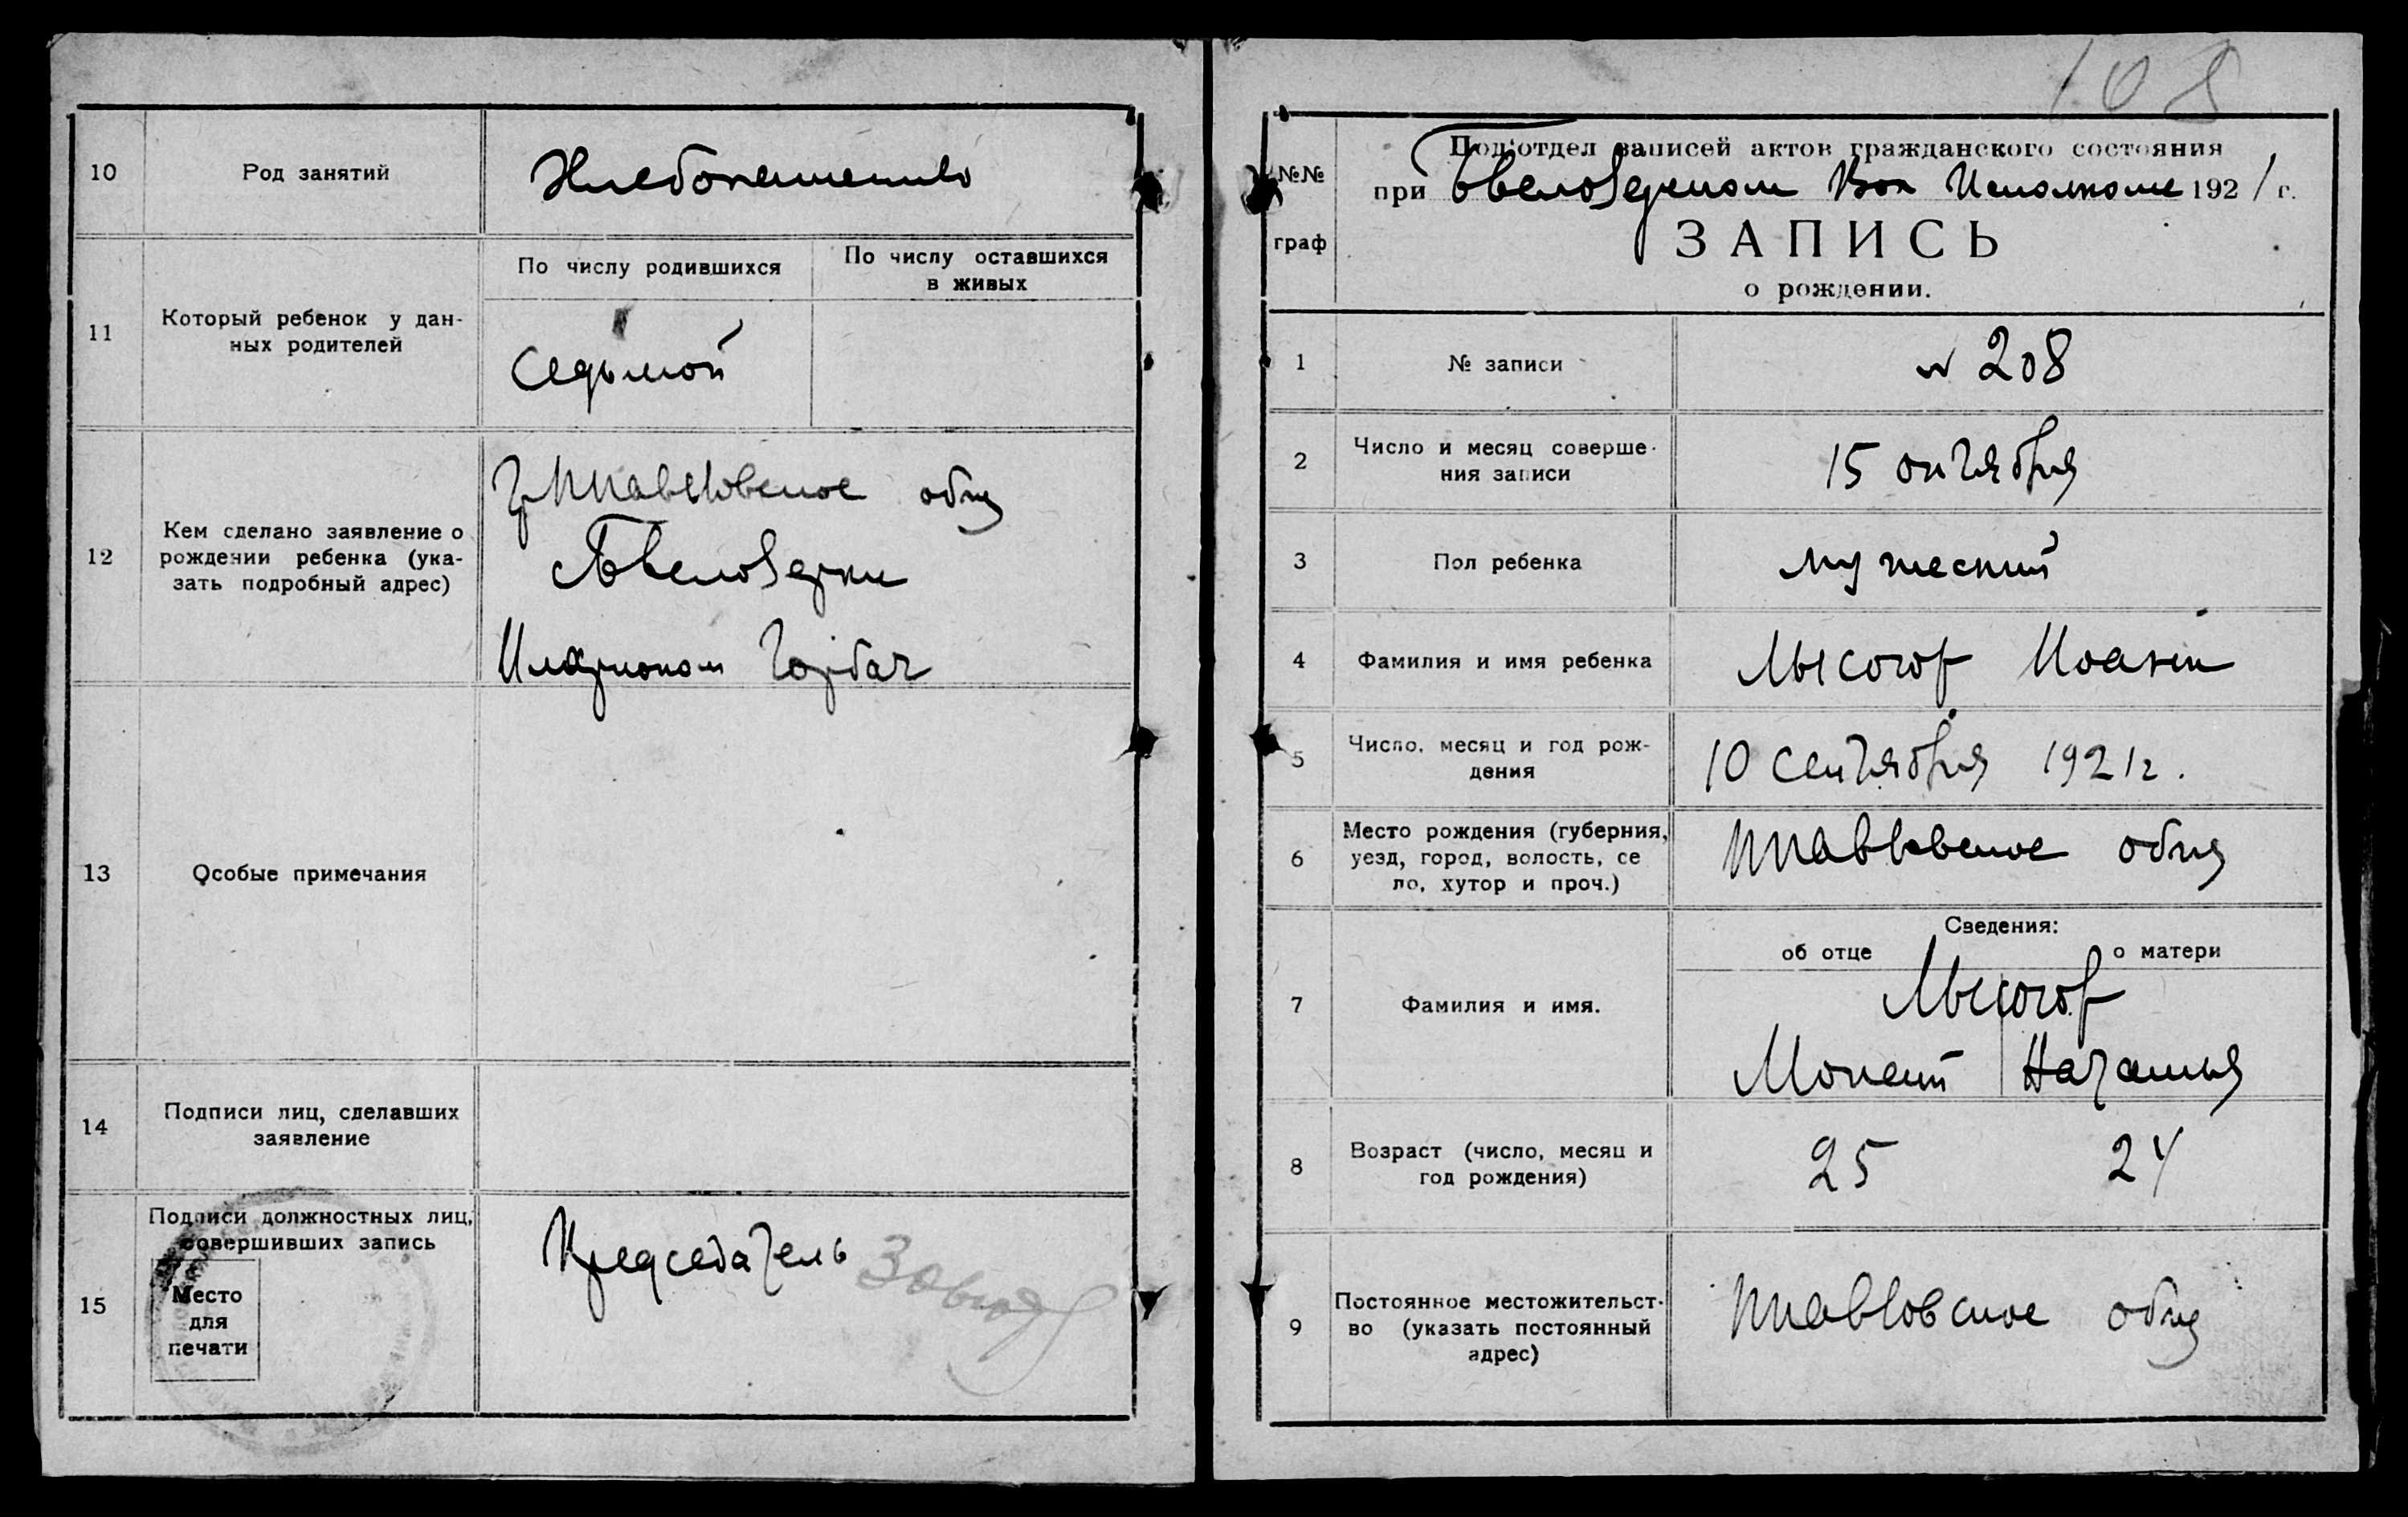 10
Род занятий
Хлебопашество
11
Который ребенок у дан-
ных родителей
По числу родившихся
По числу оставшихся
в живых
седьмой
12
Кем сделано заявление о
рождении ребенка (ука-
зать подробный адрес)
общ
Иларионом Горбач
13
Особые примечания
14
Подписи лиц, сделавших
заявление
15
Подписи должностных лиц,
совершивших запись
Место
для
печати
Председатель
108
№№
граф
Подотдел записей актов гражданского состояния
при Вол Исполкоме 1921 г.
ЗАПИСЬ
о рождении.
1
№ записи
№ 208
2
Число и месяц соверше-
ния записи
15 октября
3
Пол ребенка
мужеский
4
Фамилия и имя ребенка
Лысогор Иоанн
5
Число, месяц и год рож-
дения
10 сентября 1921 г.
6
Место рождения (губерния,
уезд, город, волость, се
ло, хутор и проч.)
общ
7
Фамилия и имя.
Сведения:
об отце
о матери
Лысогор
Мокей Наталья
8
Возраст (число, месяц и
год рождения)
25
24
9
Постоянное местожительст-
во (указать постоянный
адрес)
общ